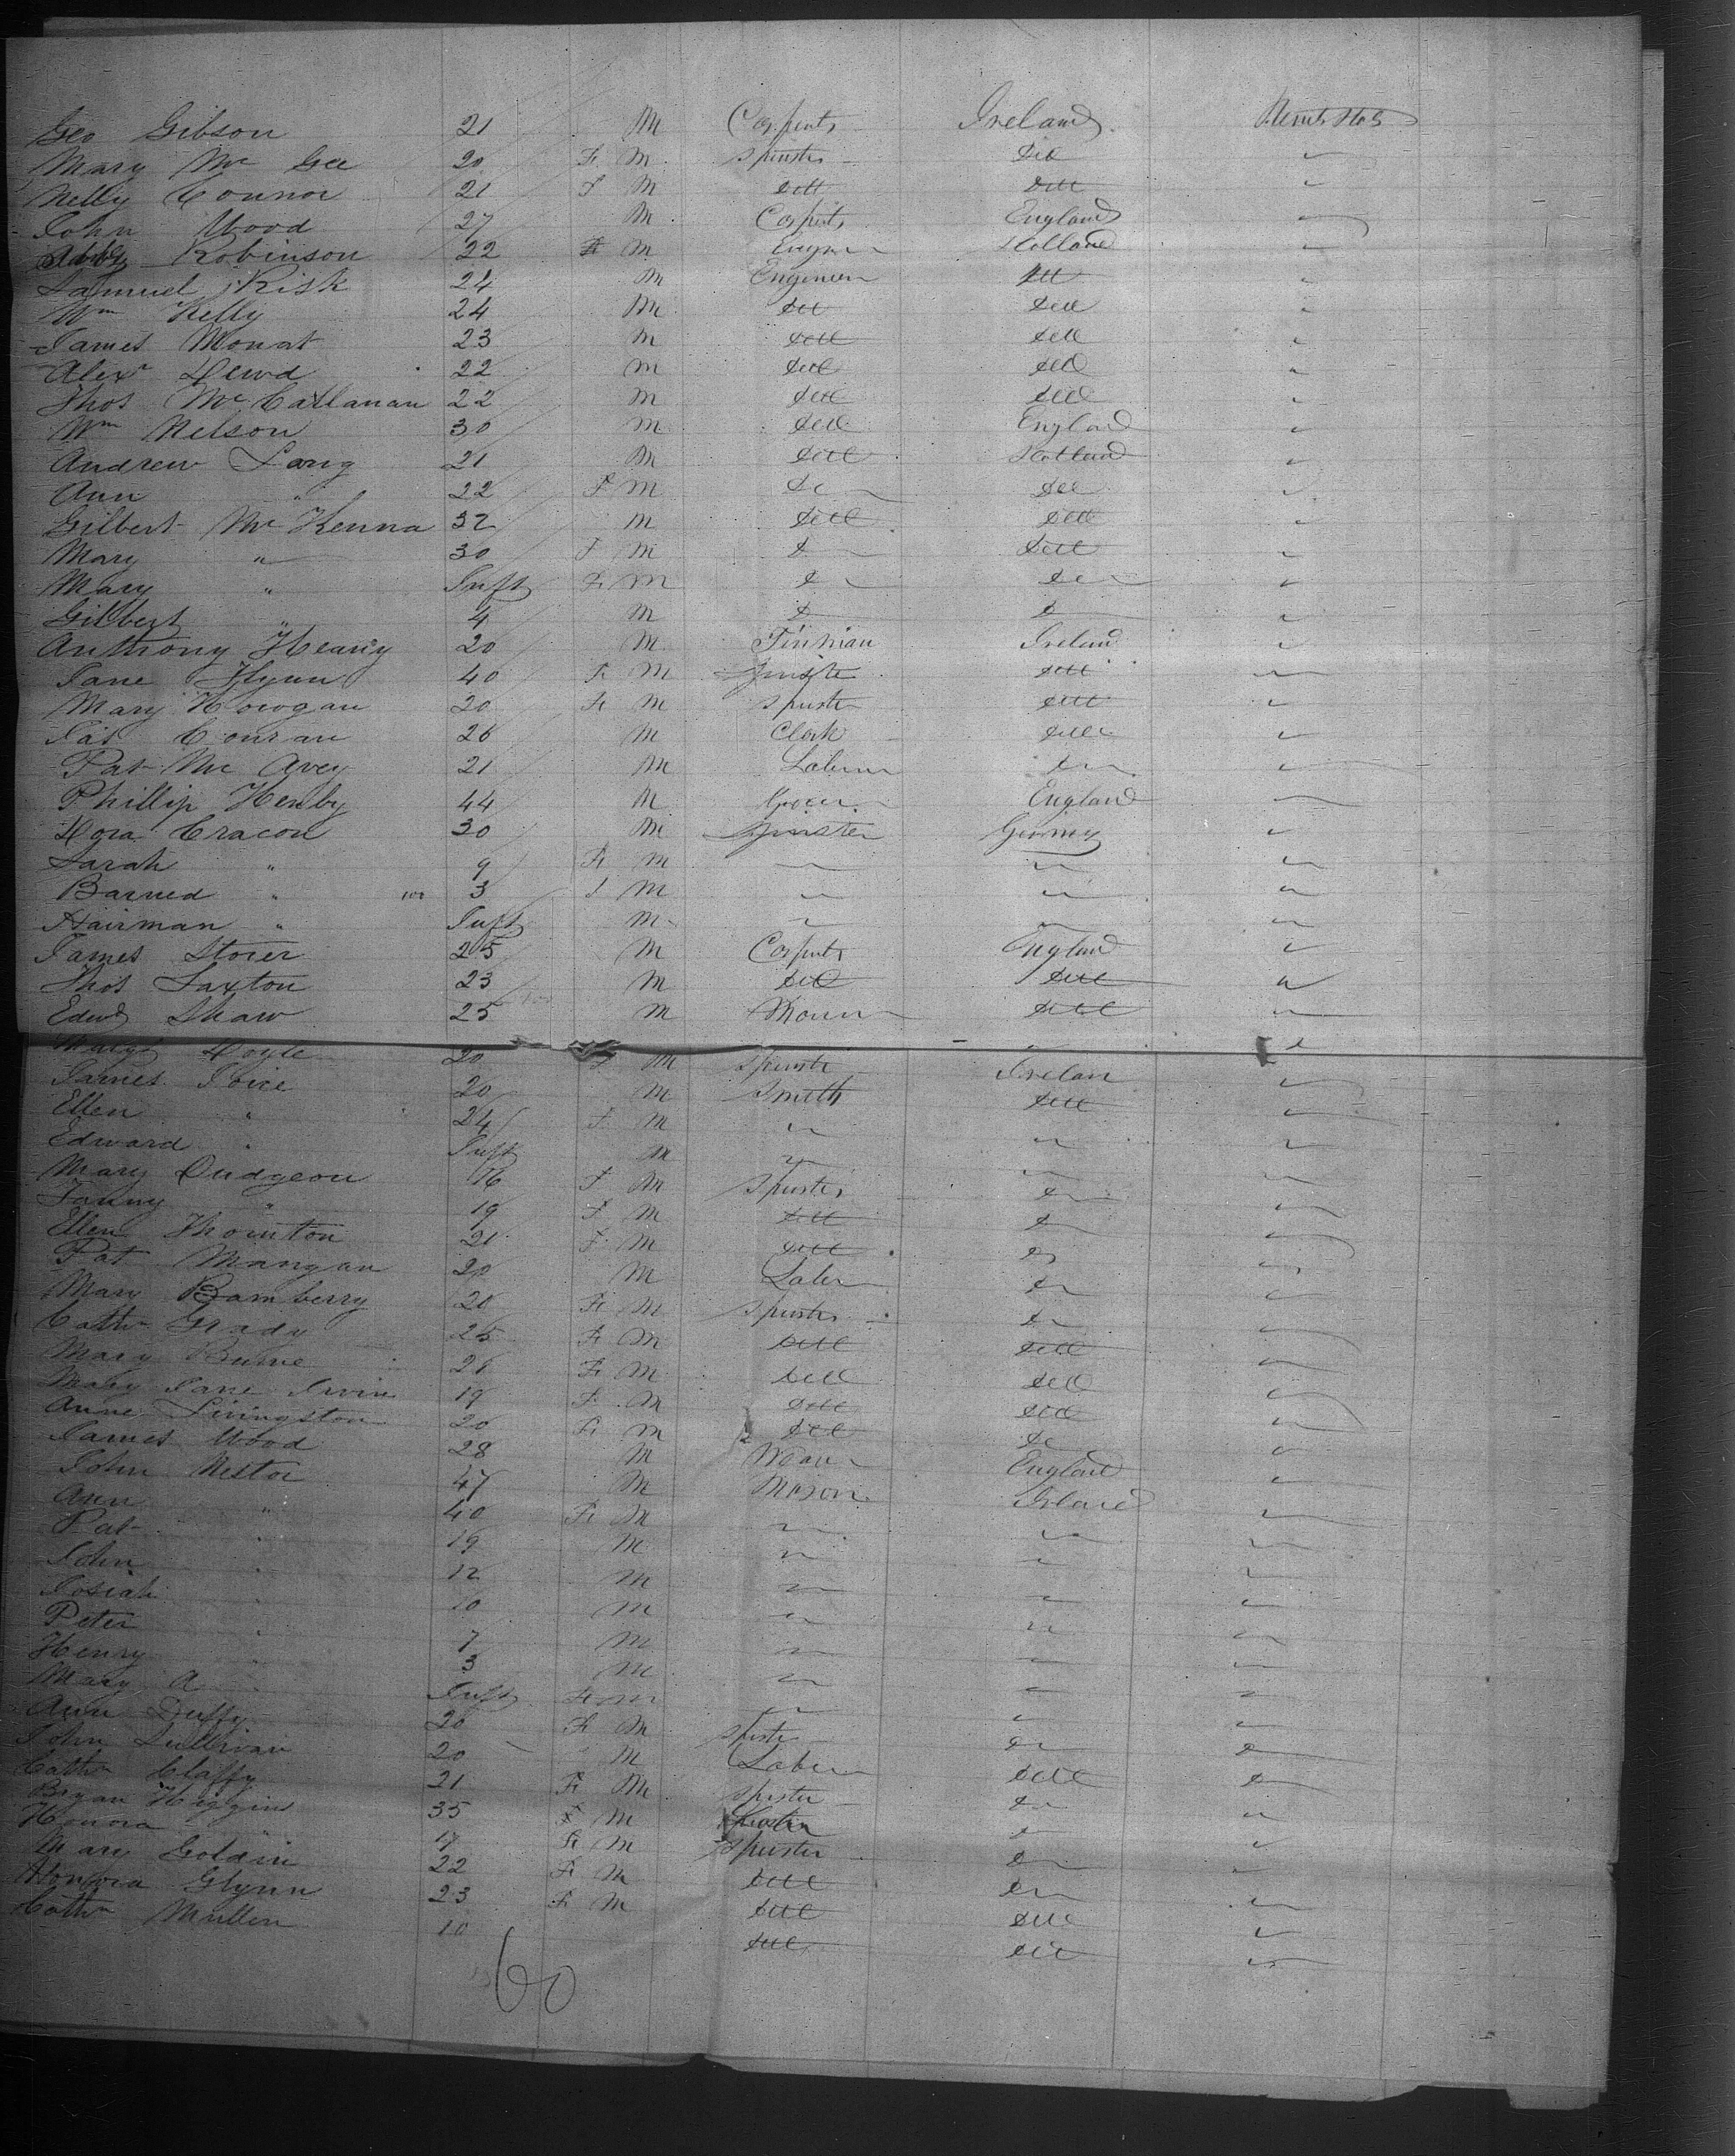 Geo Gibson 21 M Carpentr Ireland
Mary Mc Gee 20 F M Spinster Do
Nelly Connor 21 F M Ditto Ditto
John Wood 27 M Carpntr England
Robinson 22 M Scotland
Samuel Risk 24 M Engineer Ditto
Wm Kelly 24 M Ditto Ditto
James Monat 23 M Ditto Ditto
Alexr 22 M Ditto Ditto
Thos Mc Callanan 22 M Ditto Ditto
Wm Nelson 30 M Ditto England
Andrew Lang 21 M Ditto Scotland
Ann " 22 F M Do Ditto
Gilbert Mc Kenna 32 M Ditto Ditto
Mary " 30 F M Ditto
Mary " Inft F M
Gilbert " 4 M
Anthony Heavey 20 M Tinman Ireland
Jane Flynn 40 F M Spinster Ditto
Mary Horogan 20 F M Spinster Ditto
Conran 26 M Clerk Ditto
Pat Mc Avey 21 M Laborer
Phillip Henby 44 M Grocer England
Dora Cracon 30 M Spinster Germy
Sarah " 9 F M
Barned " 3 F M
Hairman " Inft M
James Storer 25 M Carpntr England
Thos Saxton 23 M Ditto Ditto
Edwd Shaw 25 M Ditto
Margt Doyle 20 F M Spinster Irelan
James Joice 20 M Smith Ditto
Ellen " 24 F M
Edward " Inft M
Mary Dudgeon 16 F M Spinster
Fanny " 19 F M Ditto
Ellen Thornton 21 F M Ditto
Pat Mangan 20 M Labr
Mary Bamberry 20 F M Spinster
Cathn Grady 25 F M Ditto Ditto
Mary Burne 21 F M Ditto Ditto
Mary Jane Irvin 19 F M Ditto Ditto
Anne Livingston 20 F M Ditto Do
James Wood 28 M Weaver England
John Nestor 47 M Mason Ireland
Ann " 40 F M
Pat " 19 M
John " 12 M
Josiah " 10 M
Peter " 7 M
Henry " 3 M
Mary A " Inft F M
Ann Duffy 20 F M Spinster
John Sullivan 20 M Laborer Ditto
Cathn Claffy 21 F M Spinster
Bryan Higgins 35 M
Honora " 17 F M Spinster
Mary Goldin 22 F M Ditto
Honora Glynn 23 F M Ditto Ditto
Cathn Mullen 10 Ditto Ditto
60